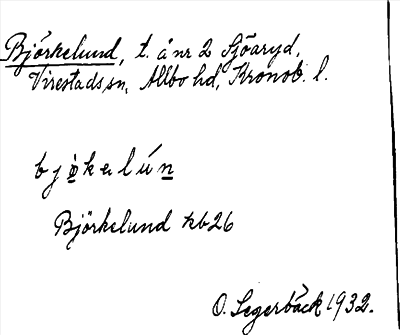 Björkelund, t. å nr 2 Sjöaryd,
Virestads sn, Allbo hd, Kronob. l.
bjökelún
Björkelund kb 26
O. Segerbäck 1932.